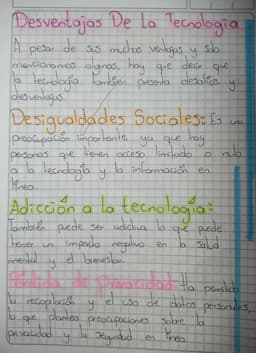 Desventajas De la Tecnología
A pesar de sus muchas ventajas y solo
mencionamos algunas, hay que decir que
la tecnología también presenta desafíos y
desventajas.
Desigualdades Sociales: Es una
preocupación importante, ya que hay
personas que tienen acceso limitado o nulo
a la tecnología y la información en
línea.
Adicción a la tecnología:
También puede ser adictiva lo que puede
tener un impacto negativo en la salud
mental y el bienestar.
Pérdida de Privacidad: Ha permitido
la recopilación y el uso de datos personales,
lo que plantea preocupaciones sobre la
privacidad y la seguridad en línea.